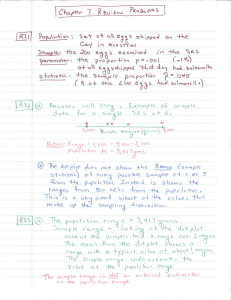 Chapter 7 Review Problems
R7.1 Population: Set of all eggs shipped on the
day in question
Sample: the 200 eggs examined in the SRS
parameter: the proportion p=.001 (.1%)
of all eggs shipped that day had salmonella
statistic: the sample proportion p̂ = .045
(9 of the 200 eggs had salmonella)
R7.2 Answers will vary. Example of sample
data for a single SRS of 5.
Birth weight (grams)
3,417 grams
the dotplot does not show the Range (sample
statistic) of every possible samples of size 5
from the population. Instead is shows the
ranges from 500 SRSs from the population.
This is a very small subset of the values that
make up the sampling distribution.
R7.3 The population range = 3,417 grams
Sample range - looking at the dot plot
none of the samples had a range
The mean from the dot plot shows a
range with a typical value of about
The sample range underestimates the
value of the population range
The sample range is not an unbiased estimator
of the population range